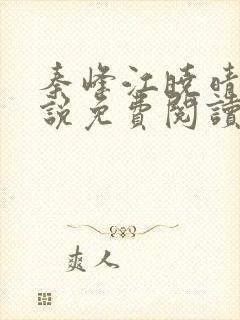 秦峰江曉晴
說免費閱讀
爽人